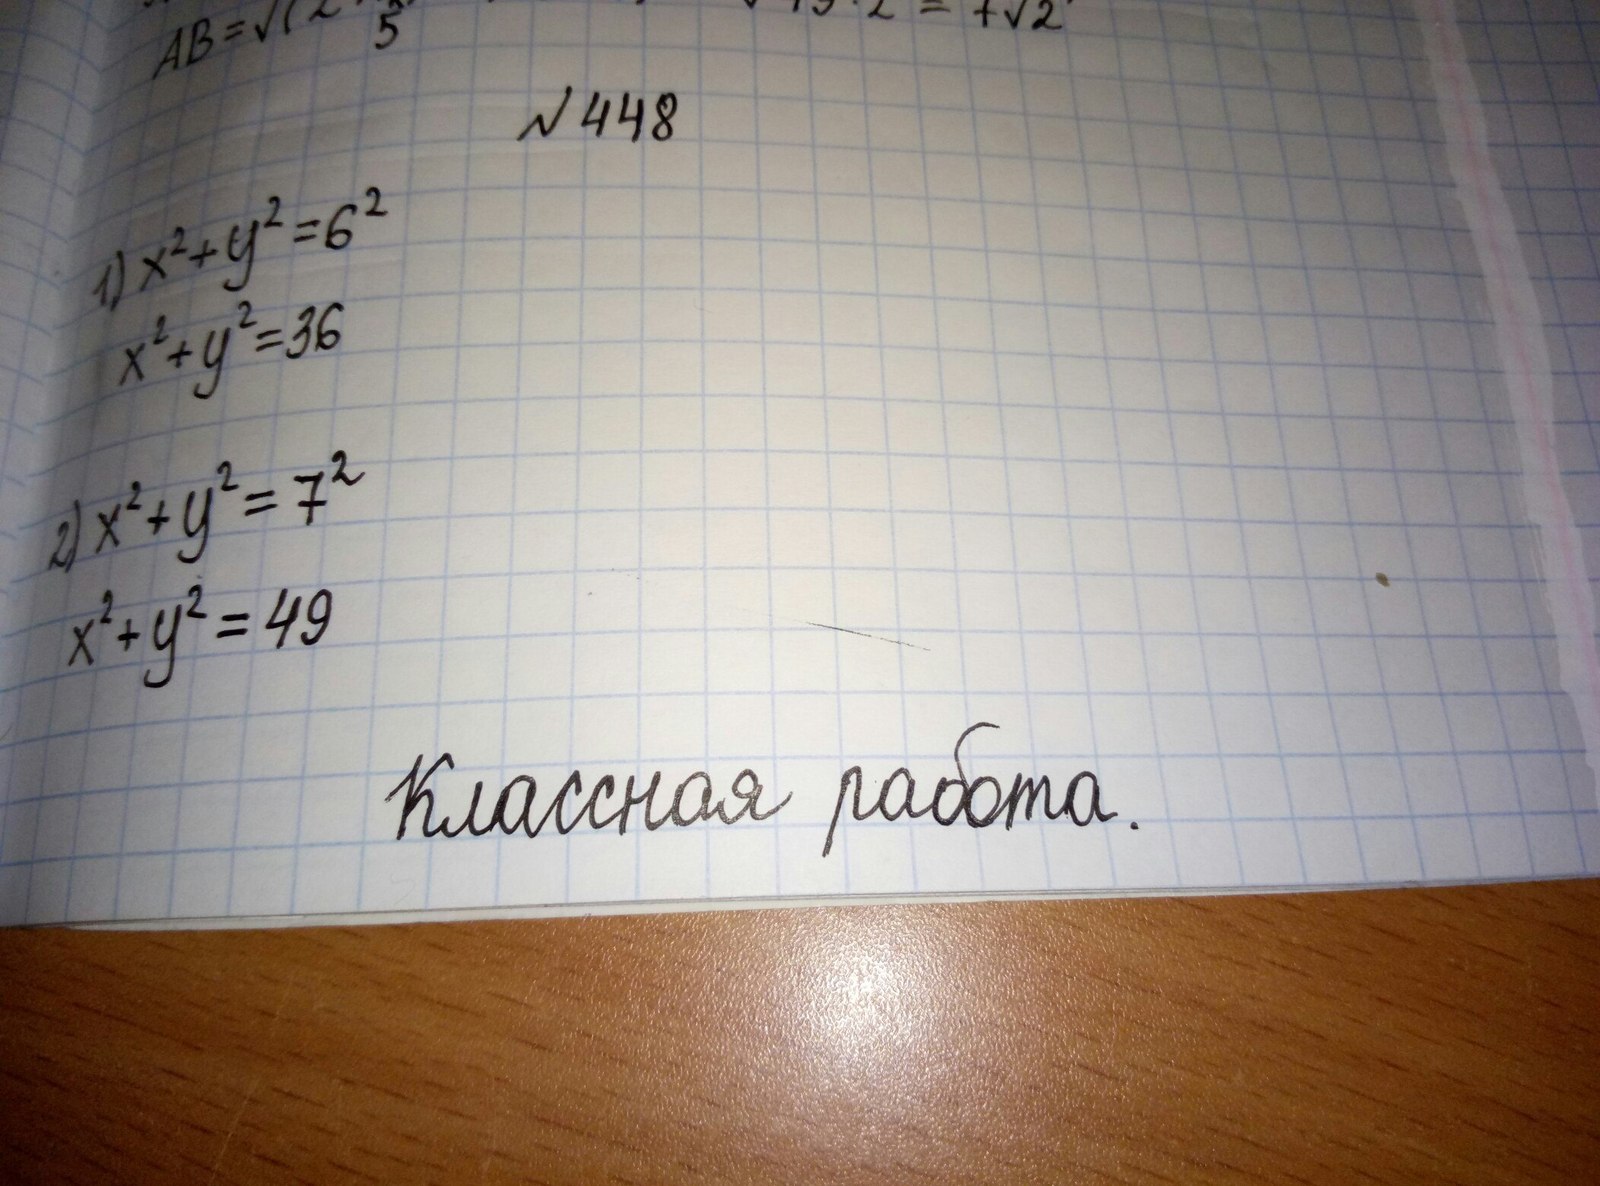 AB=√(2
5
= 7√2
№448
1) x²+y²=6²
x²+y²=36
2) x²+y²=7²
x²+y²=49
Классная работа.